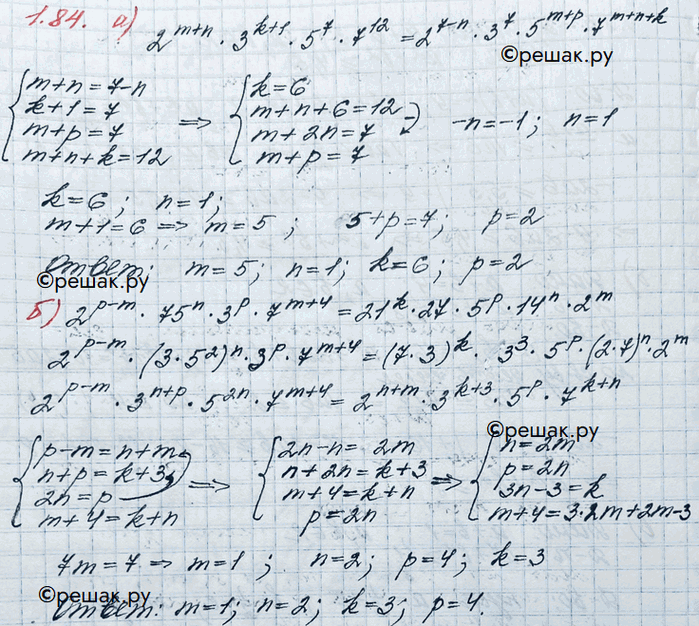 1.84. а) 2^{m+n} · 3^{k+1} · 5^7 · 7^{12} = 2^{7-n} · 3^7 · 5^{m+p} · 7^{m+n+k}
©решак.ру
{ m+n=7-n
k+1=7
m+p=7
m+n+k=12
=> { k=6
m+n+6=12
m+2n=7
m+p=7
-n=-1; n=1
k=6; n=1;
m+1=6 => m=5; 5+p=7; p=2
Ответ: m=5; n=1; k=6; p=2
©решак.ру
б) 2^{p-m} · 75^n · 3^p · 7^{m+4} = 21^k · 27 · 5^p · 14^n · 2^m
2^{p-m} · (3·5^2)^n · 3^p · 7^{m+4} = (7·3)^k · 3^3 · 5^p · (2·7)^n · 2^m
2^{p-m} · 3^{n+p} · 5^{2n} · 7^{m+4} = 2^{n+m} · 3^{k+3} · 5^p · 7^{k+n}
©решак.ру
{ p-m=n+m
n+p=k+3
2n=p
m+4=k+n
=> { 2n-n=2m
n+2n=k+3
m+4=k+n
p=2n
=> { n=2m
p=2n
3n-3=k
m+4=3·2m+2m-3
7m=7 => m=1; n=2; p=4; k=3
©решак.ру
Ответ: m=1; n=2; k=3; p=4.